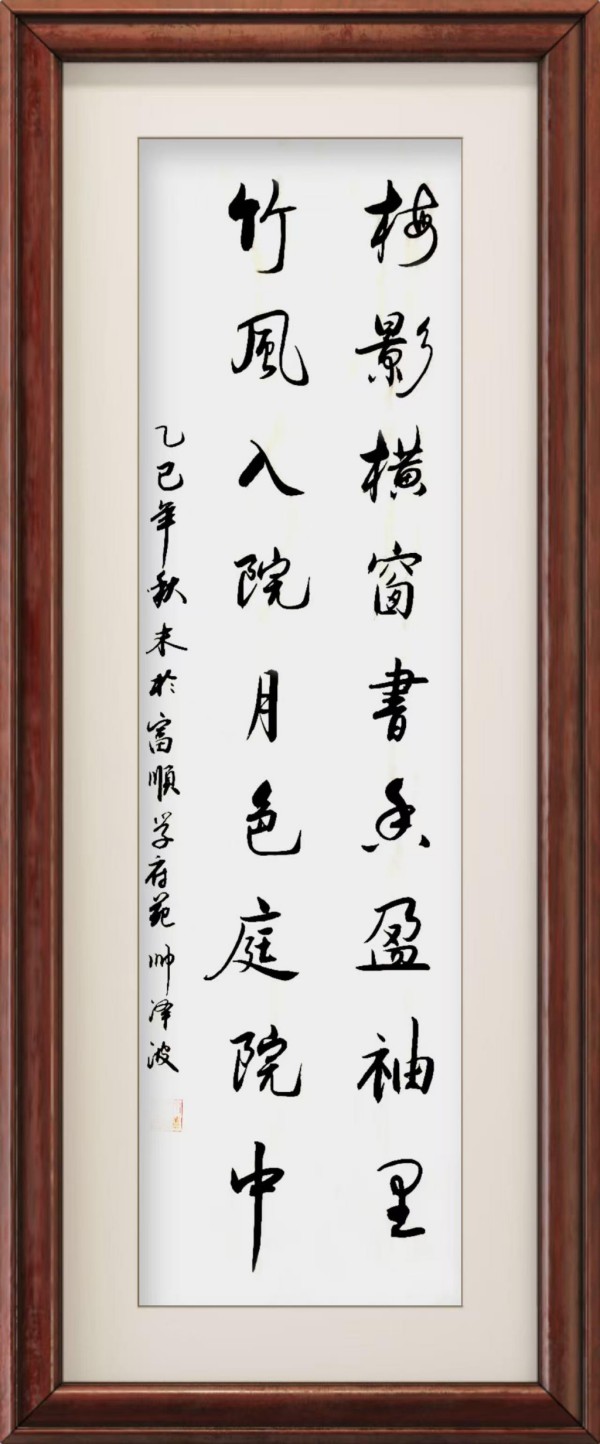 梅影橫窗書香盈袖里
竹風入院月色庭院中
乙巳年秋末於富順学府苑帅泽波